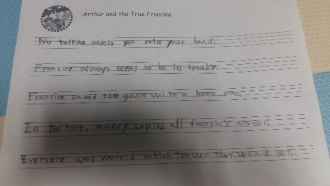 Arthur and the True Francine
No talking unless you raise your hand.
Francine always seems to be in trouble.
Francine saved the game with a home run.
In the test, muffy copies off francine's
was which teacher they would get.